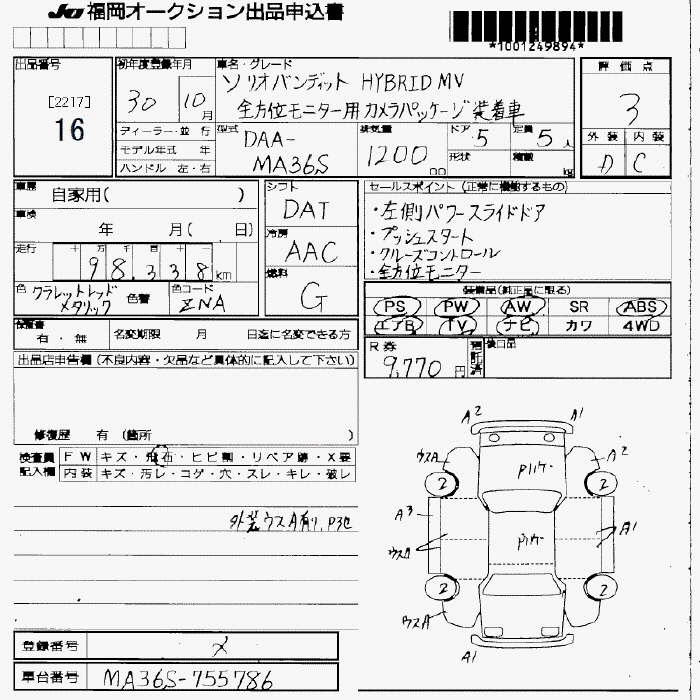 JU 福岡オークション出品申込書
*1001249894*
出品番号
[2217]
16
初年度登録年月
30 10月
車名・グレード
ソリオバンディット HYBRID MV
全方位モニター用カメラパッケージ装着車
評価点
3
外装 内装
D C
ディーラー・並行
モデル年式 年
ハンドル 左・右
型式
DAA-
MA36S
排気量
1200 cc
ドア 5
形状
定員 5人
積載 kg
車歴 自家用( )
車検 年 月( . 日)
走行 十 万 千 百 十 一
98,338km
色 クラレットレッドメタリック 色替
色コード ZNA
シフト DAT
冷房 AAC
燃料 G
セールスポイント (正常に機能するもの)
・左側パワースライドドア
・プッシュスタート
・クルーズコントロール
・全方位モニター
装備品(純正品に限る)
PS PW AW SR ABS
エアB TV ナビ カワ 4WD
保証書 有・無
名変期限 月 日迄に名変できる方
R券 9,770円 預託済
後日品
出品店申告欄 (不良内容・欠品など具体的に記入して下さい)
修復歴 有 (箇所 )
検査員記入欄
FW キズ・飛石・ヒビ割・リペア跡・X要
内装 キズ・汚レ・コゲ・穴・スレ・キレ・破レ
外装ウスA有り、
A2 A1
ウスA A2
2 2
A3 A1
ウスA
2 2
ウスA
A1
登録番号 メ
車台番号 MA36S-755786